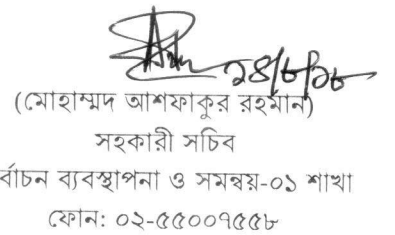 ১৪/৮/১৮
(মোহাম্মদ আশফাকুর রহমান)
সহকারী সচিব
র্বাচন ব্যবস্থাপনা ও সমন্বয়-০১ শাখা
ফোন: ০২-৫৫০০৭৫৫৮